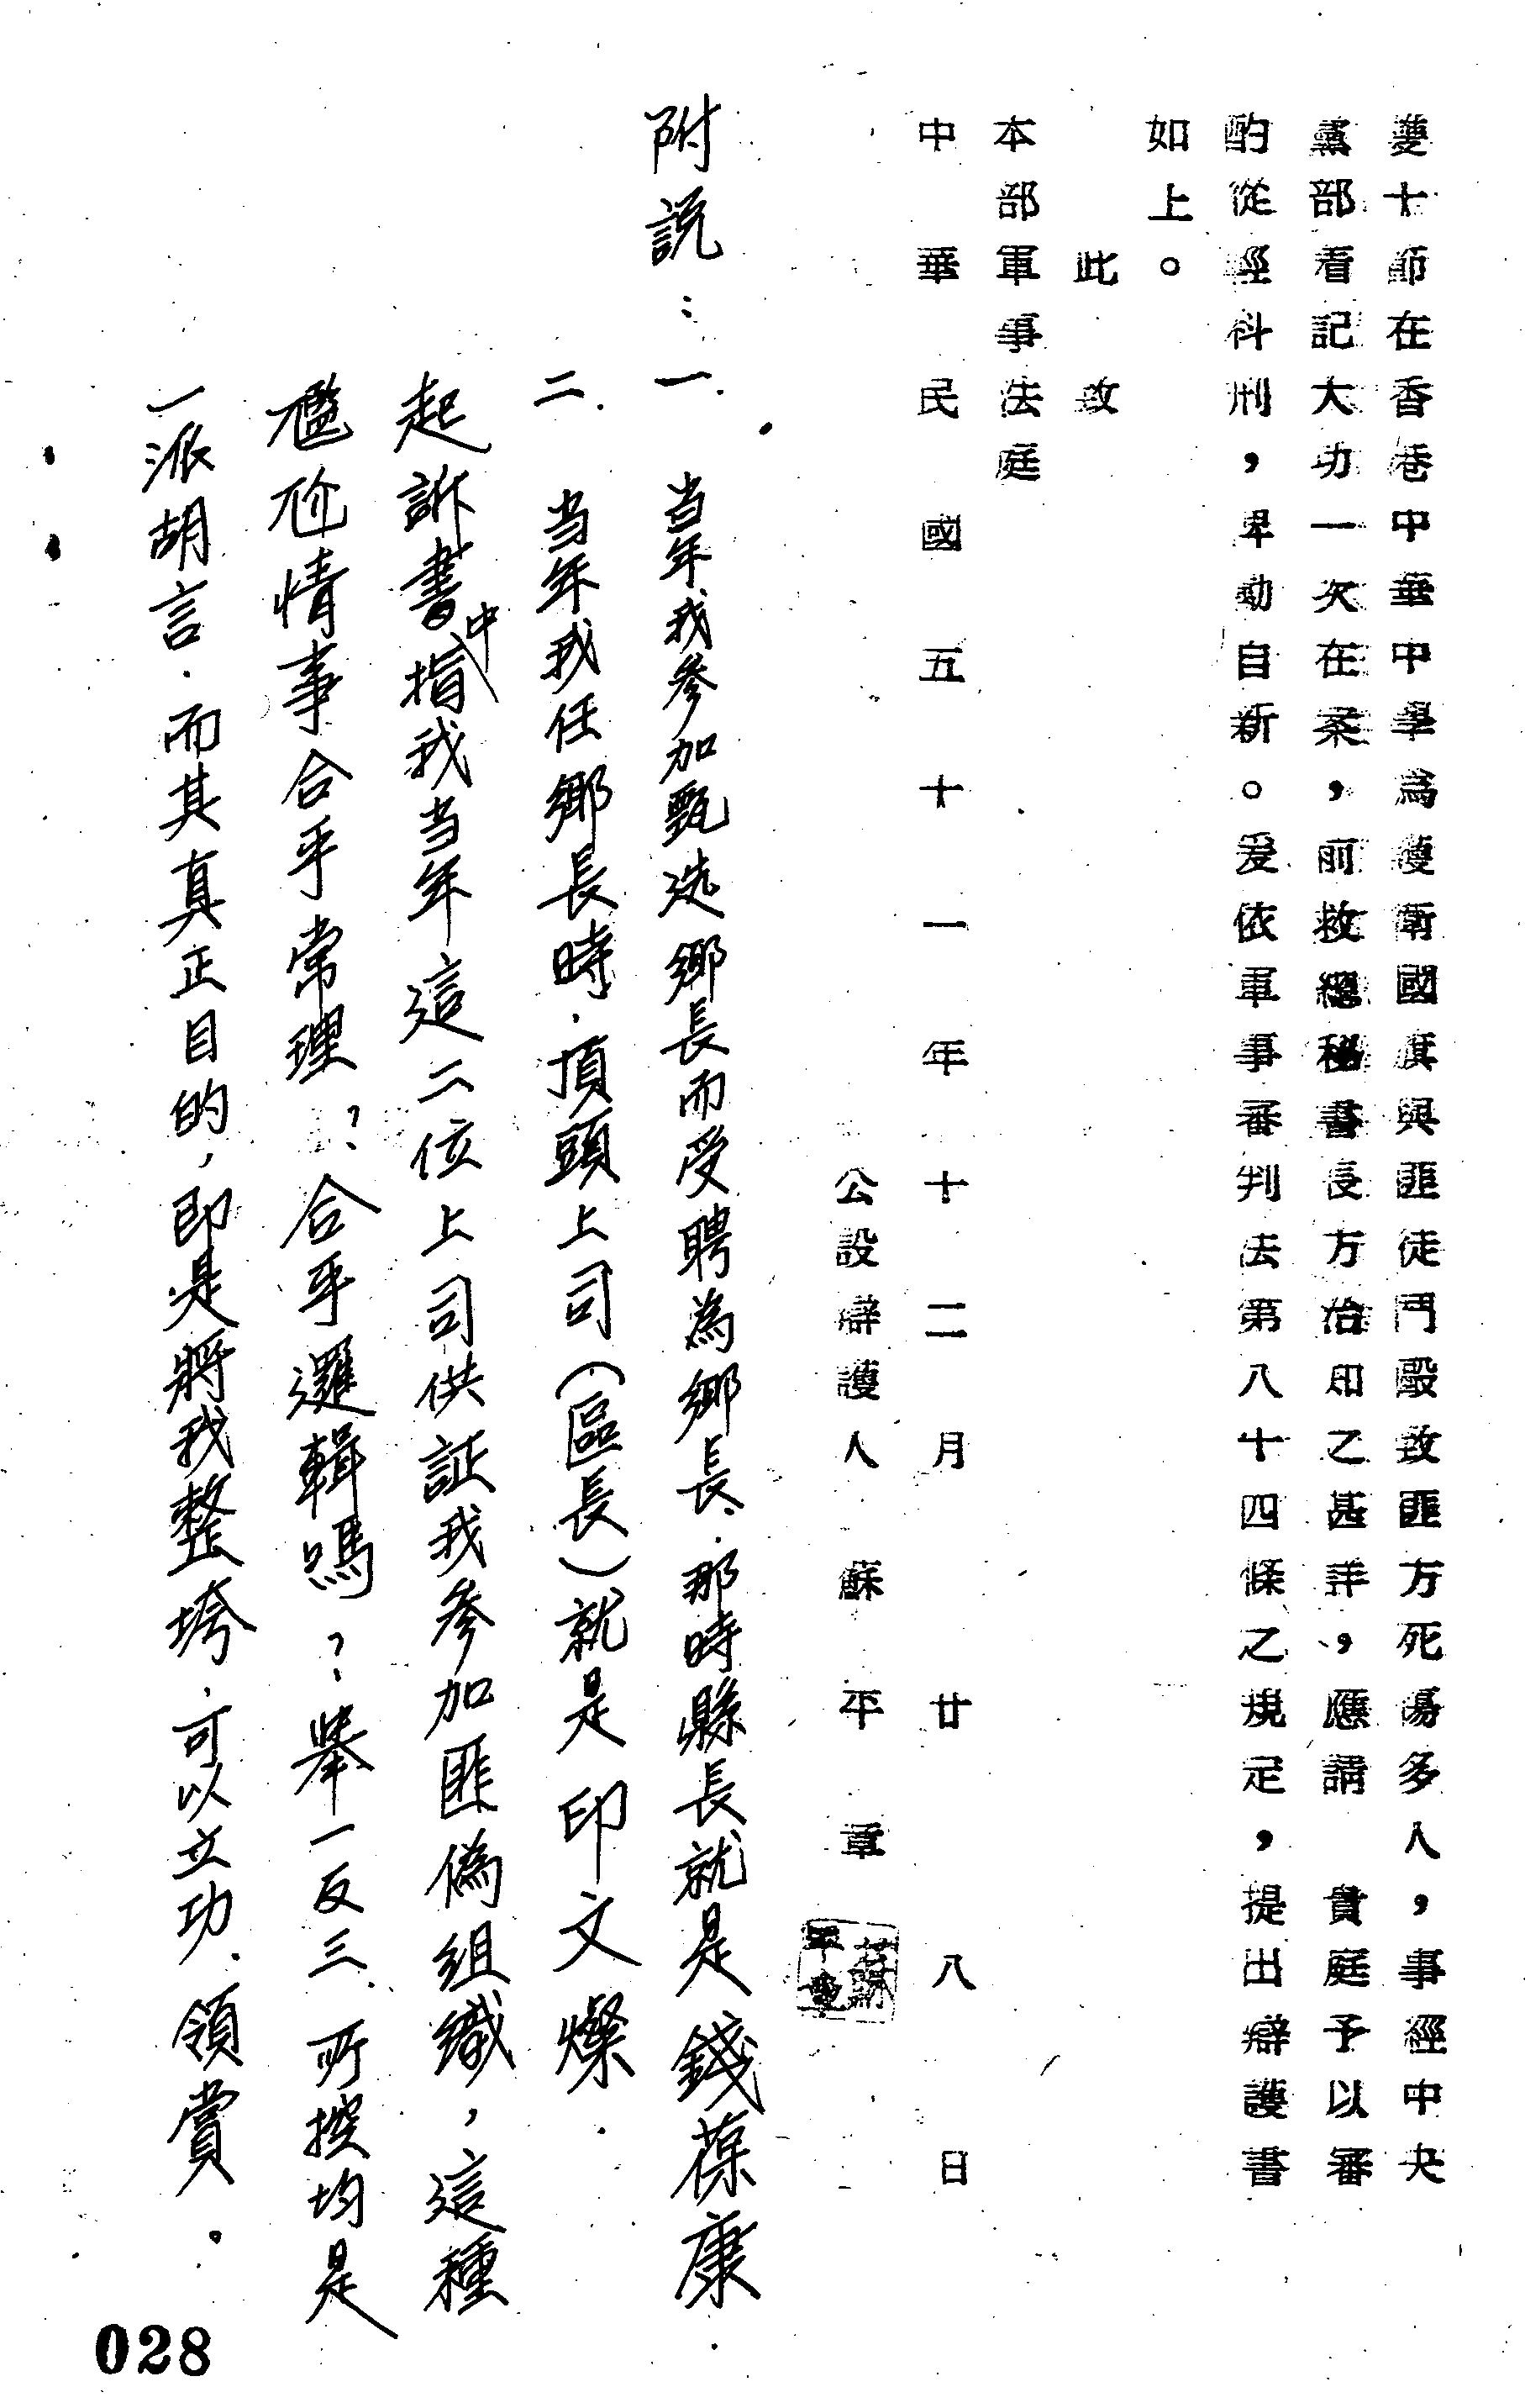 雙十節在香港中華中學為護衛國旗與匪徒鬥毆致匪方死傷多人，事經中央
黨部看記大功一次在案，前救總秘書長方治知之甚詳，應請　貴庭予以審
酌從輕科刑，俾勵自新。爰依軍事審判法第八十四條之規定，提出辯護書
如上。
此致
本部軍事法庭
中華民國五十一年十二月廿八日
公設辯護人蘇平章
蘇平章
附說：一. 当年我参加甄选鄉長而受聘為鄉長.那時縣長就是錢葆康
二. 当年我任鄉長時.頂頭上司(區長)就是印文燦.
起訴書中指我当年這二位上司供証我参加匪偽組織，這種
尷尬情事合乎常理？合乎邏輯嗎？舉一反三.所控均是
一派胡言.而其真正目的，即是將我整垮.可以立功.領賞。
028